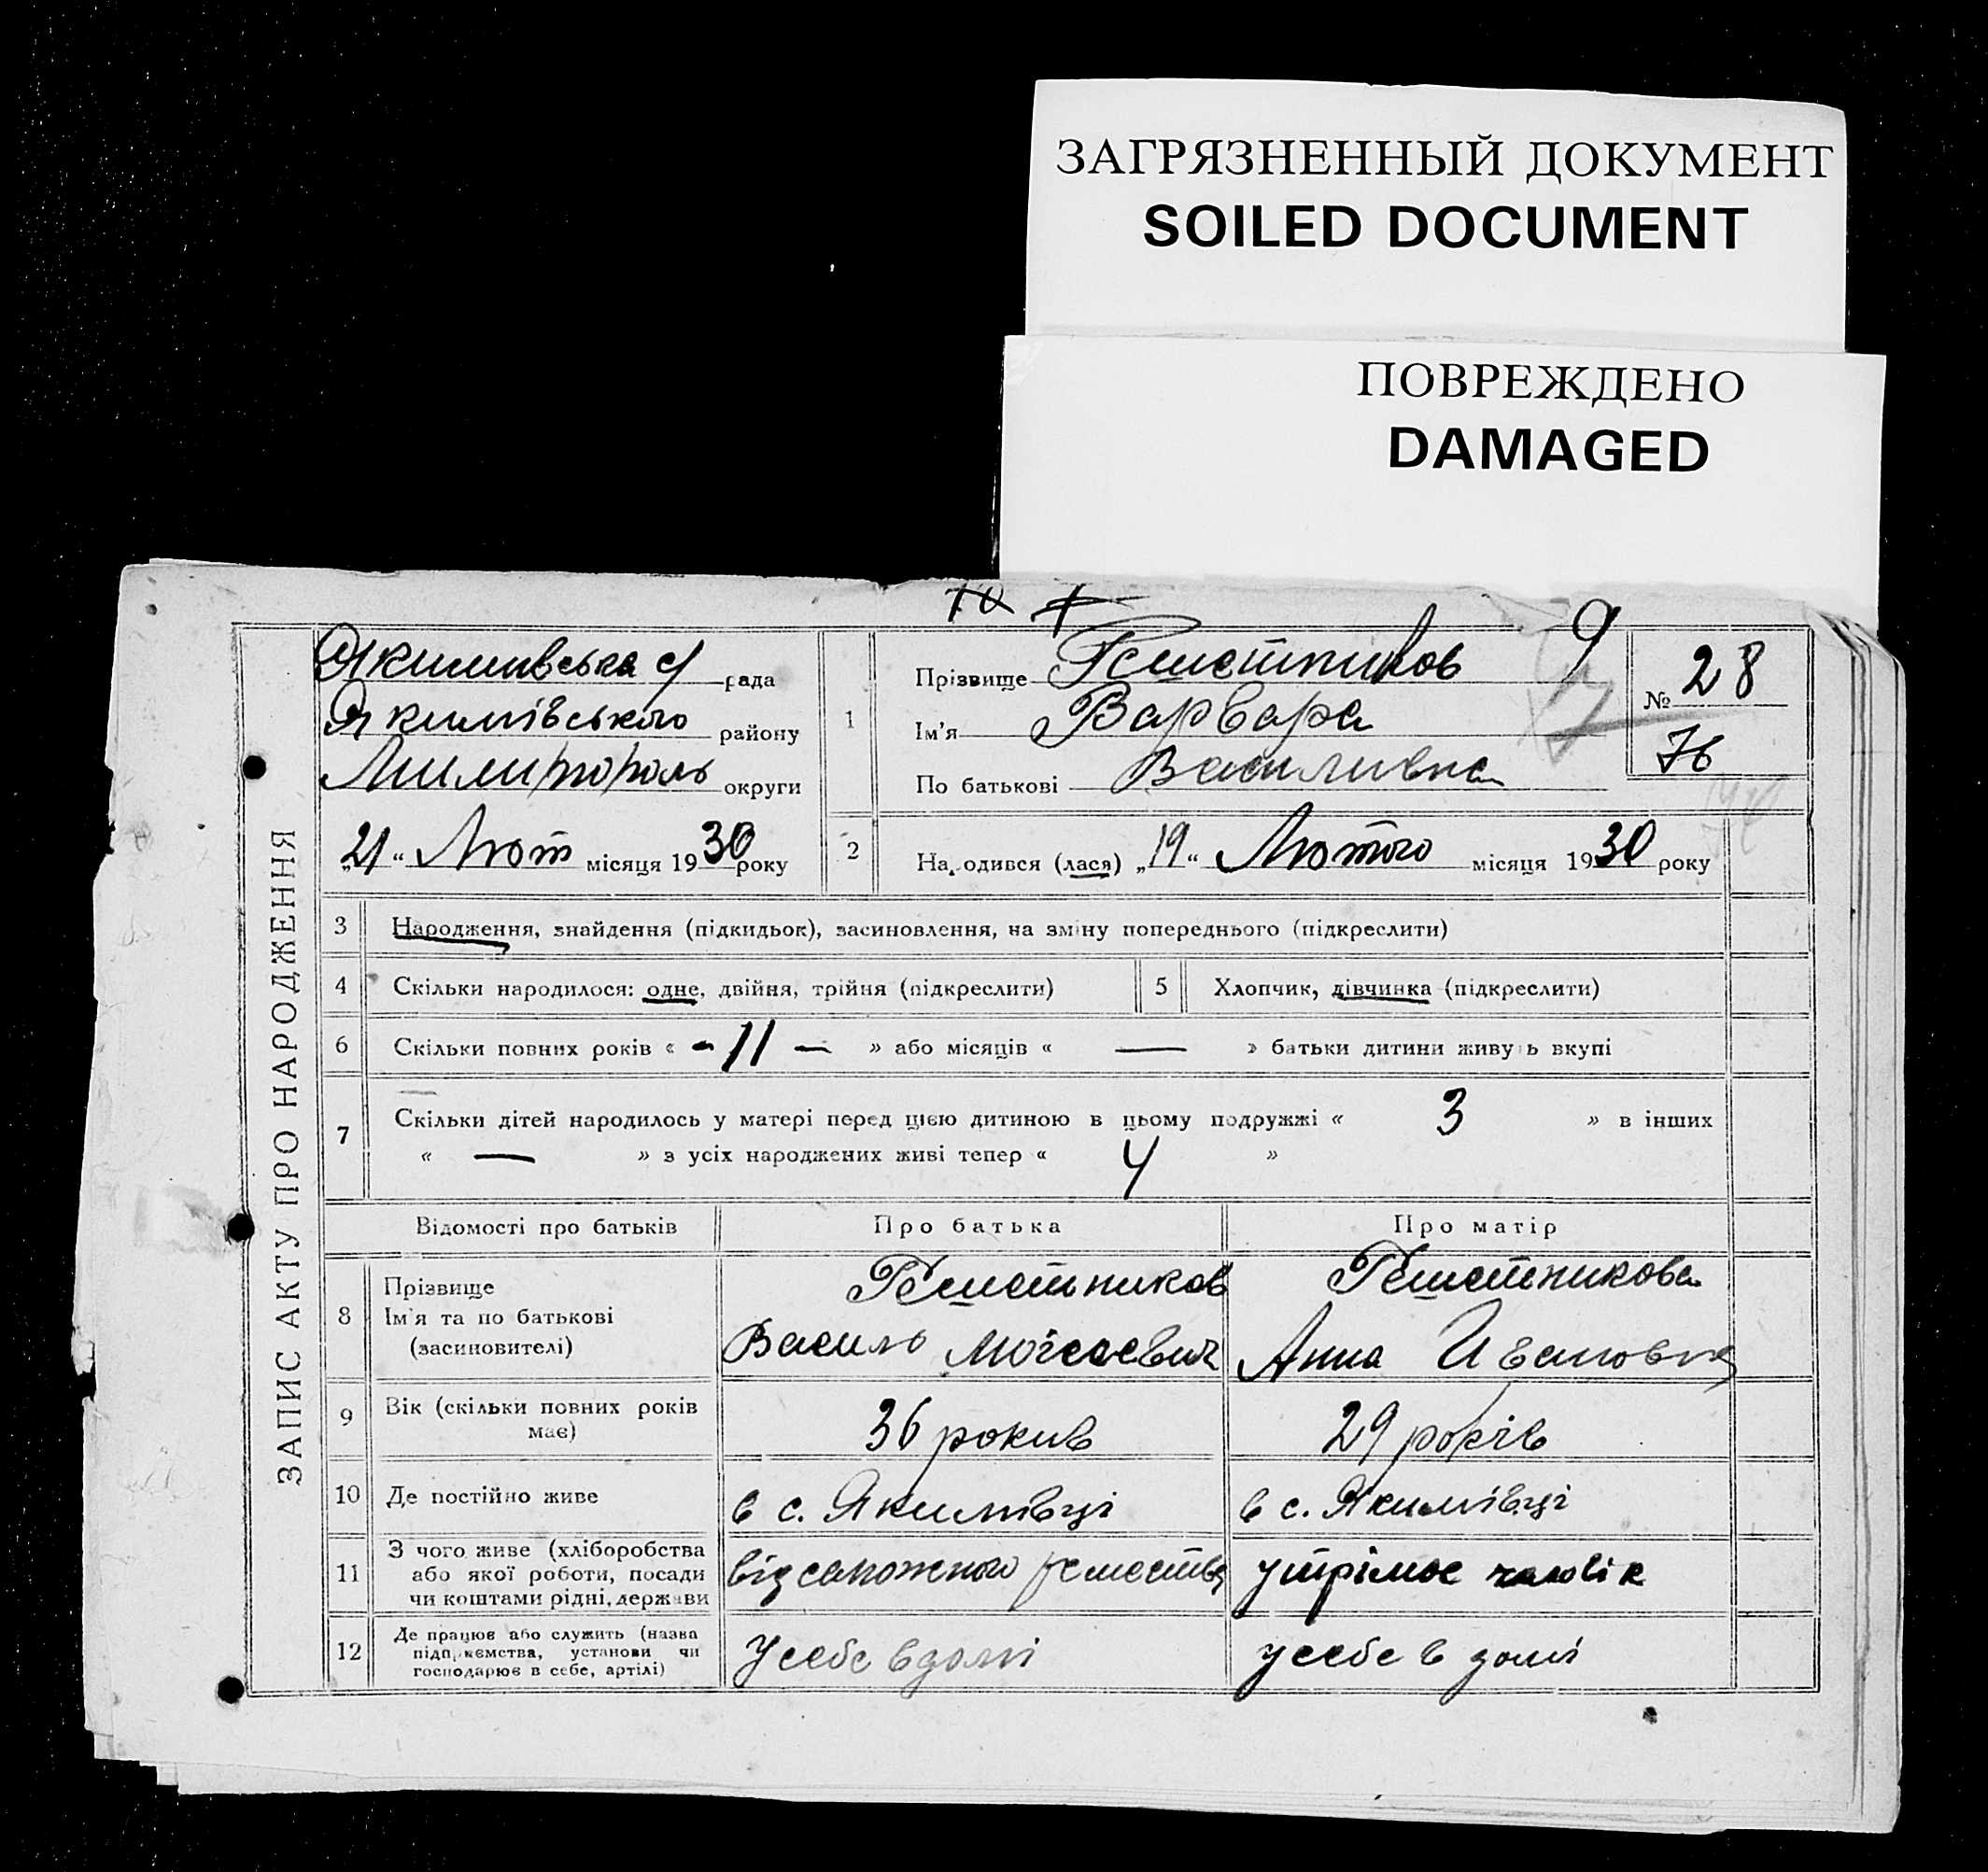 ЗАГРЯЗНЕННЫЙ ДОКУМЕНТ
SOILED DOCUMENT
ПОВРЕЖДЕНО
DAMAGED
ЗАПИС АКТУ ПРО НАРОДЖЕННЯ
Якимивська с/ рада
Якимівського району
Милитополь округи
„21“ Лют місяця 1930 року
1
Прізвище Решетников
Ім'я Варвара
По батькові Василивна
9
№ 28
76
2 Народився (лася) „19“ Лютого місяця 1930 року
3 Народження, знайдення (підкидьок), засиновлення, на зміну попереднього (підкреслити)
4 Скільки народилося: одне, двійня, трійня (підкреслити)
5 Хлопчик, дівчинка (підкреслити)
6 Скільки повних років « - 11 - » або місяців « — » батьки дитини живуть вкупі
7 Скільки дітей народилось у матері перед цією дитиною в цьому подружжі « 3 » в інших
« — » з усіх народжених живі тепер « 4 »
Відомості про батьків Про батька Про матір
8 Прізвище
Ім'я та по батькові
(засиновителі)
Решетников
Василь Моісеевич
Решетникова
Анна Ивановна
9 Вік (скільки повних років
має)
36 рокив
29 років
10 Де постійно живе
в с. Якимівці
в с. Якимівці
11 З чого живе (хліборобства
або якої роботи, посади
чи коштами рідні, держави
від сапожного ремества
утрімое чоловік
12 Де працює або служить (назва
підприємства, установи чи
господарює в себе, артілі)
У себе в домі
у себе в домі